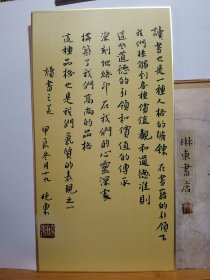 讀書也是一種人格的修鍊 在書籍的引領下
我們接觸到各種價值觀和道德準則
這些道德的引領和價值的傳承
深刻地烙印在我們的心靈深處
構築了我們高尚的品格
這種品格也是我們氣質的表現之一
讀書之美 甲辰冬月十九 曉東
琳東書店